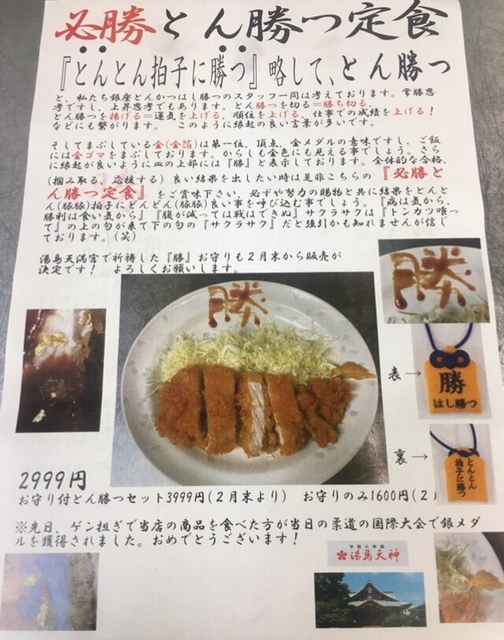 必勝とん勝つ定食
『とんとん拍子に勝つ』略して、とん勝つ
と、私たち銀座とんかつはし勝つのスタッフ一同は考えております。常勝思
考ですし、上昇思考でもあります。とん勝つを切る＝勝ち切る、
とん勝つを揚げる＝運気を上げる、順位を上げる、仕事での成績を上げる！
などにも繋がります。 このように縁起の良い言葉が多いです。
そしてまぶしている金(金箔)は第一位、頂点、金メダルの意味ですし、ご飯
には金ゴマをまぶしております。からしも金色にも見える事でしょう。さら
に縁起が良いようにの皿の上部には『勝』と表示しております。全体的な合格、
(掴み取る、応援する) 良い結果を出したい時は是非こちらの『必勝と
ん勝つ定食』をご賞味下さい、必ずや努力の賜物と共に結果をとんと
ん(豚豚)拍子にどんどん(豚豚)良い事を呼び込む事でしょう。『病は気から、
勝利は食い気から』『腹が減っては戦はできぬ』サクラサクは『トンカツ喰っ
て』の上の句が来て下の句の『サクラサク』だと強引かも知れませんが信じ
ております。(笑)
湯島天満宮で祈祷した『勝』お守りも2月末から販売が
決定です！ よろしくお願いします。
勝
勝
表→
勝
はし勝つ
裏→
とんとん
拍子に勝つ
2999円
お守り付とん勝つセット3999円(2月末より) お守りのみ1600円(2)
※先日、ゲン担ぎで当店の商品を食べた方が当日の柔道の国際大会で銀メダ
ルを獲得されました。おめでとうございます！
湯島天神